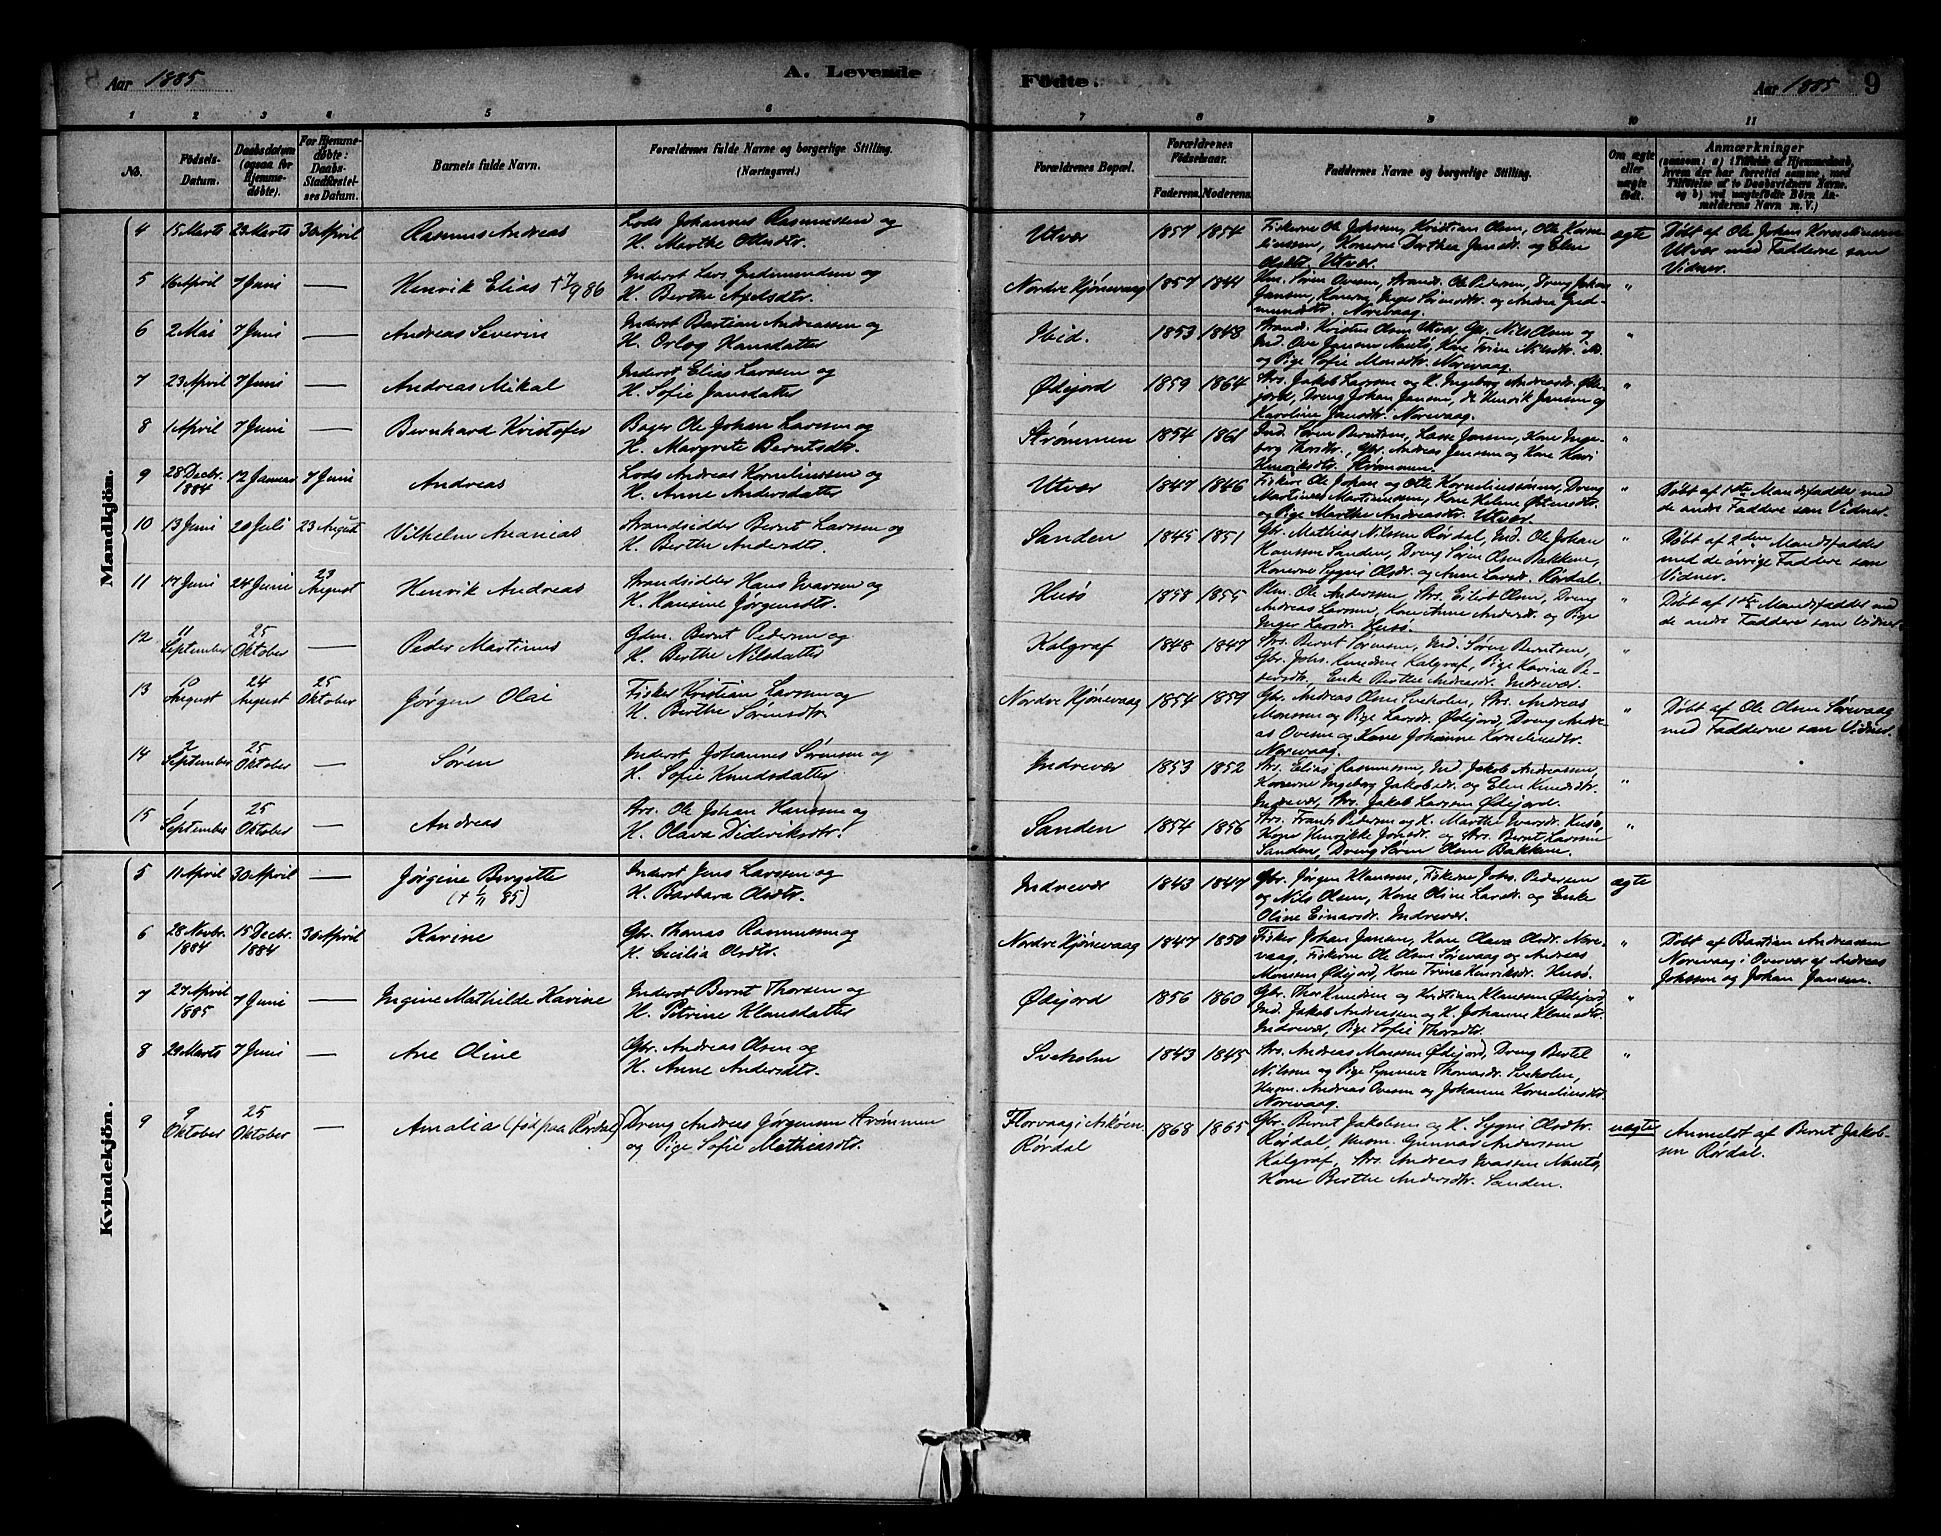 Aar 1885
A. Levende
Födte.
Aar 1885
9
1 2 3 4 5 6 7 8 9 10 11
No.
Födsels-Datum.
Daabsdatum (ogsaa for Hjemmedøbte).
For Hjemmedøbte: Daabs-Stadfæstelses Datum.
Barnets fulde Navn.
Forældrenes fulde Navne og borgerlige Stilling.
(Næringsvei.)
Forældrenes Bopæl.
Forældrenes Födselsaar.
Faderens. Moderens.
Faddernes Navne og borgerlige Stilling.
Om ægte eller uægte födt.
Anmærkninger
(saasom: a) i Tilfælde af Hjemmedaab, hvem der har forrettet samme, med Tilføielse af to Daabsvidners Navne, og b) ved uægtefødte Börn Anmelderens Navn m. V.)
Mandkjön.
4 15 Marts 23 Marts 30 April Rasmus Andreas Lods Johannes Rasmussen og
H. Marthe Olsdtr. Utvær 1857 1854 Fiskerne Ole Johsen, Kristian Olsen, Ole Korne-
liussen, Konerne Dorthea Jensdtr. og Elen
Olsdtr. Utvær. ægte Døbt af Ole Johan Korneliussen
Utvær med Fadderne som
Vidner.
5 16 April 7 Juni — Henrik Elias + 7/9 86 Inderst Lars Gudmundsen og
H. Berthe Axelsdtr. Nordre Hjønevaag 1857 1844 Hm. Søren Ovesen, Strands. Ole Pedersen, Dreng Johan
Jansen, Konerne Inger Simonsdtr. og Andrea Gud-
mundsdtr. Norevaag. "
6 2 Mai 7 Juni — Andreas Severin Inderst Bastian Andreassen og
H. Orlog Hansdatter Ibid. 1853 1848 Strands. Kristen Olsen Utvær, Gbr. Nils Olsen og
Ind. Ove Jansen, Kone Trine Nilsdtr.
og Pige Sofie Monsdtr. Norevaag. "
7 23 April 7 Juni — Andreas Mikal Inderst Elias Larsen og
H. Sofie Jansdatter Ødejord 1859 1864 Strs. Jakob Larsen og H. Ingeborg Andreasdtr. Øde-
jord, Dreng Johan Jansen, do Henrik Jansen og
Karoline Jansdtr. Norevaag. "
8 1 April 7 Juni — Bernhard Kristofer Bager Ole Johan Larsen og
H. Margrete Berntsdtr. Strømmen 1854 1861 Ind. Søren Berntsen, Lasse Jonsen, Kone Inge-
borg Thorsdtr., Gbr. Andreas Jensen og Kone Kari
Henriksdtr. Strømmen. "
9 28 Decbr. 1884 12 Januar 7 Juni Andreas Lods Andreas Korneliussen og
H. Anne Andersdatter Utvær 1847 1846 Fiskere Ole Johan og Ole Korneliussønner, Dreng
Martinus Martinussen, Kone Helene Østensdtr.
og Pige Marthe Andreasdtr. Utvær. " Døbt af 1ste Mandsfadder med
de andre Faddere som Vidner.
10 13 Juni 20 Juli 23 August Vilhelm Ananias Strandsidder Bernt Larsen og
H. Berthe Andersdtr. Sanden 1845 1851 Gbr. Mathias Nilssen Rørdal, Ind. Ole Johan
Hanssen Sanden, Dreng Søren Olsen Bakken,
Konerne Sygni Olsdtr. og Anne Larsdtr. Rørdal. " Døbt af 2den Mandsfadder
med de øvrige Faddere som
Vidner.
11 17 Juni 24 Juni 23 August Henrik Andreas Strandsidder Hans Ivarsen og
H. Hansine Jørgensdtr. Husø 1858 1855 Ole Andersen, Strs. Eilert Olsen, Dreng
Andreas Larsen, Kone Anne Andersdtr. og Pige
Inger Larsdtr. Husø. " Døbt af 1ste Mandsfadder med
de andre Faddere som Vidner.
12 11 September 25 Oktober — Peder Martinus Gdm. Bernt Pedersen og
H. Berthe Nilsdatter Kalgraf 1848 1847 Strs. Bernt Sørensen, Ind. Søren Berntsen,
Gbr. Johs. Knudsen Kalgraf, Pige Karine Pe-
dersdtr., Enke Berthe Andersdtr. Indrevær. "
13 10 August 24 August 25 Oktober Jørgen Olai Fisker Kristian Larsen og
H. Berthe Sørensdtr. Nordre Hjønevaag 1854 1859 Gbr. Andreas Olsen Sveholm, Strs. Andreas
Monssen og Pige Larsdtr. Ødejord, Dreng Andre-
as Ovesen og Kone Johanne Korneliusdtr.
Norevaag. " Døbt af Ole Olsen Sørevaag
med Fadderne som Vidner.
14 2 September 25 Oktober — Søren Inderst Johannes Sørensen og
H. Sofie Knudsdatter Indrevær 1853 1852 Strs. Elias Rasmussen, Ind. Jakob Andreassen,
Konerne Ingeborg Jakobsdtr. og Elen Knudsdtr.
Indrevær, Strs. Jakob Larsen Ødejord. "
15 1 September 25 Oktober — Andreas Strs. Ole Johan Hanssen og
H. Olava Didriksdtr. Sanden 1854 1856 Strs. Frants Pedersen og H. Marthe Ivarsdtr. Husø,
Kone Henrikke Jonsdtr. og Strs. Bernt Larsen
Sanden, Dreng Søren Olsen Bakken. "
Kvindekjön.
5 11 April 30 April — Jørgine Birgitte
(+ 1/11 85) Inderst Jens Larssen og
H. Barbara Olsdtr. Indrevær 1843 1847 Gbr. Jørgen Klaussen, Fiskerne Johs. Pedersen
og Nils Olsen, Kone Oline Larsdtr. og Enke
Oline Einarsdtr. Indrevær. ægte
6 28 Novbr. 1884 15 Decbr. 1884 30 April Karine Gbr. Thomas Rasmussen og
H. Cicilia Olsdtr. Nordre Hjønevaag 1847 1850 Fisker Johan Jansen, Kone Olava Olsdtr. Nore-
vaag, Fiskerne Ole Olsen Sørevaag og Andreas
Monssen Ødejord, Kone Trine Henriksdtr. Husø. " Døbt af Bastian Andreassen
Norevaag i Overvær af Andreas
Johssen og Johan Jansen.
7 27 April 1885 7 Juni — Ingine Mathilde Karine Inderst Bernt Thorsen og
H. Petrine Klausdatter Ødejord 1856 1860 Gbr. Thor Knudsen og Kristian Klaussen Ødejord,
Ind. Jakob Andreassen og H. Johanne Klausdtr.
Indrevær, Pige Sofie Thorsdtr. "
8 29 Marts 7 Juni — Ane Oline Gbr. Andreas Olsen og
H. Anne Andersdtr. Sveholm 1843 1845 Strs. Andreas Monssen Ødejord, Dreng Bertel
Nilssen og Pige Synneve Thomasdtr. Sveholm,
Husm. Andreas Ovesen og Johanne Korneliusdtr.
Norevaag. "
9 9 Oktober 25 Oktober — Amalia (fød paa Rørdal) Dreng Andreas Jørgensen Strømmen
og Pige Sofie Mathiasdtr. Florvaag i Askøen
Rørdal 1868 1865 Gbr. Bernt Jakobsen og H. Sygni Olsdtr.
Rørdal, Husm. Gunnar Anderssen
Kalgraf, Strs. Andreas Ivarssen,
Kone Berthe Andersdtr. Sanden. uægte Anmeldt af Bernt Jakob-
sen Rørdal.